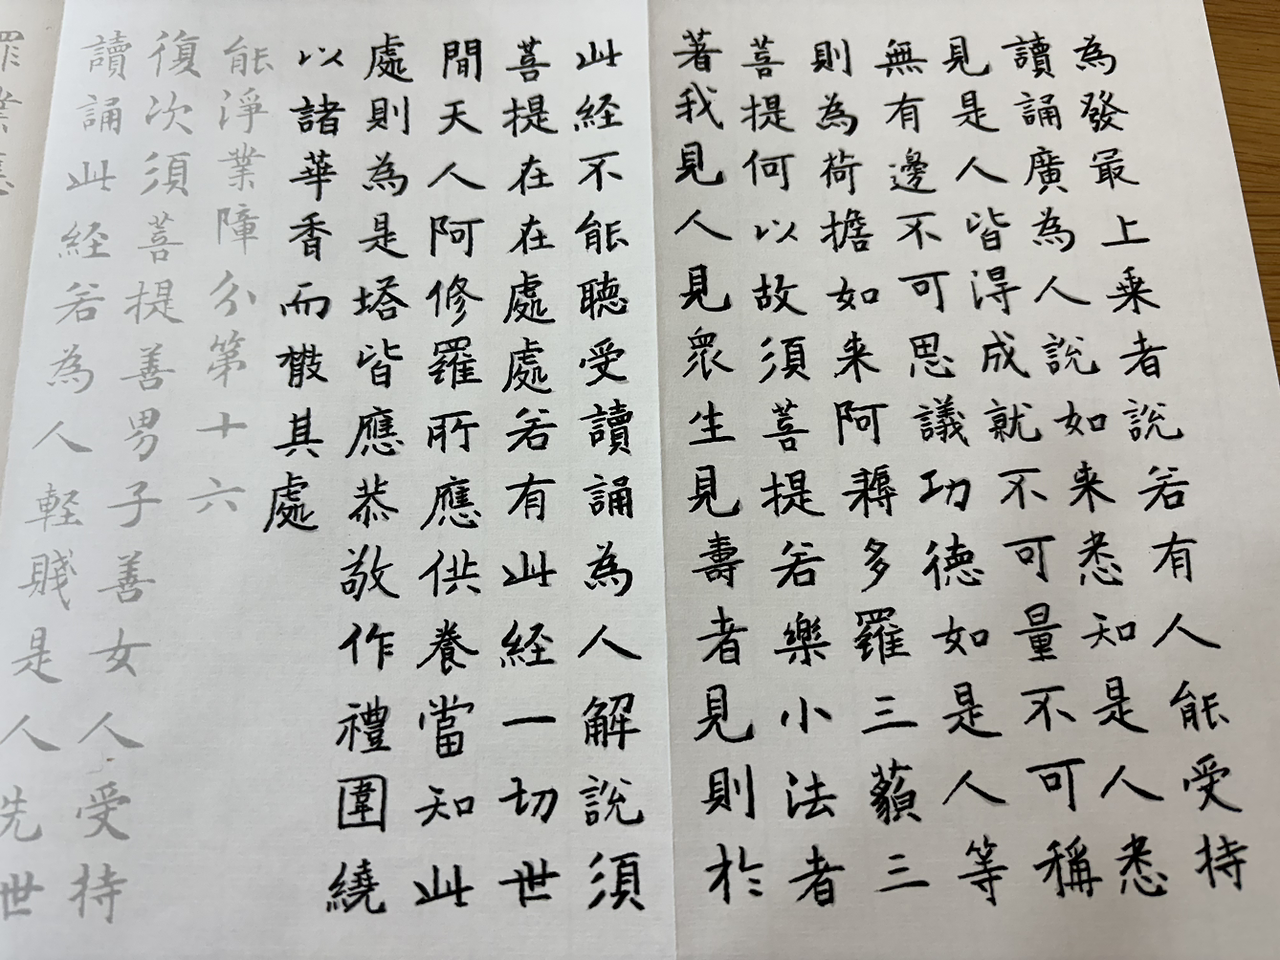 為發最上乗者說若有人能受持
讀誦廣為人說如来悉知是人悉
見是人皆得成就不可量不可稱
無有邊不可思議功德如是人等
則為荷擔如来阿耨多羅三藐三
菩提何以故須菩提若樂小法者
著我見人見衆生見壽者見則於
此経不能聴受讀誦為人解說須
菩提在在處處若有此経一切世
間天人阿修羅所應供養當知此
處則為是塔皆應恭敬作禮圍繞
以諸華香而散其處
能淨業障分第十六
復次須菩提善男子善女人受持
讀誦此経若為人軽賤是人先世
罪業應